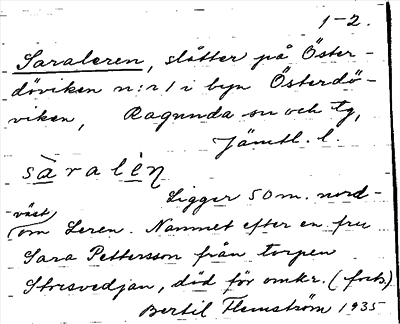 1-2.
Saraleren, slåtter på Öster-
döviken n:r 1 i byn Österdö-
viken, Ragunda sn och tg,
Jämtl. l.
sàralèn
Ligger 50 m. nord-
väst
om Leren. Namnet efter en fru
Sara Pettersson från torpen
Storsvedjan, död för omkr. (forts)
Bertil Flemström 1935